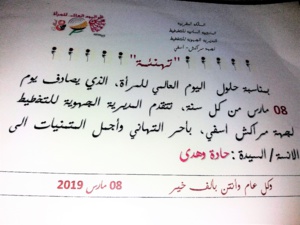 المملكة المغربية
المندوبية السامية للتخطيط
المديرية الجهوية للتخطيط
لجهة مراكش - آسفي
"تهنئة"
بمناسبة حلول اليوم العالمي للمرأة، الذي يصادف يوم
08 مارس من كل سنة، تتقدم المديرية الجهوية للتخطيط
لجهة مراكش اسفي، بأحر التهاني وأجمل المتمنيات الى
الانسة / السيدة : حادة وهدى
وكل عام وأنتن بألف خير
08 مارس 2019